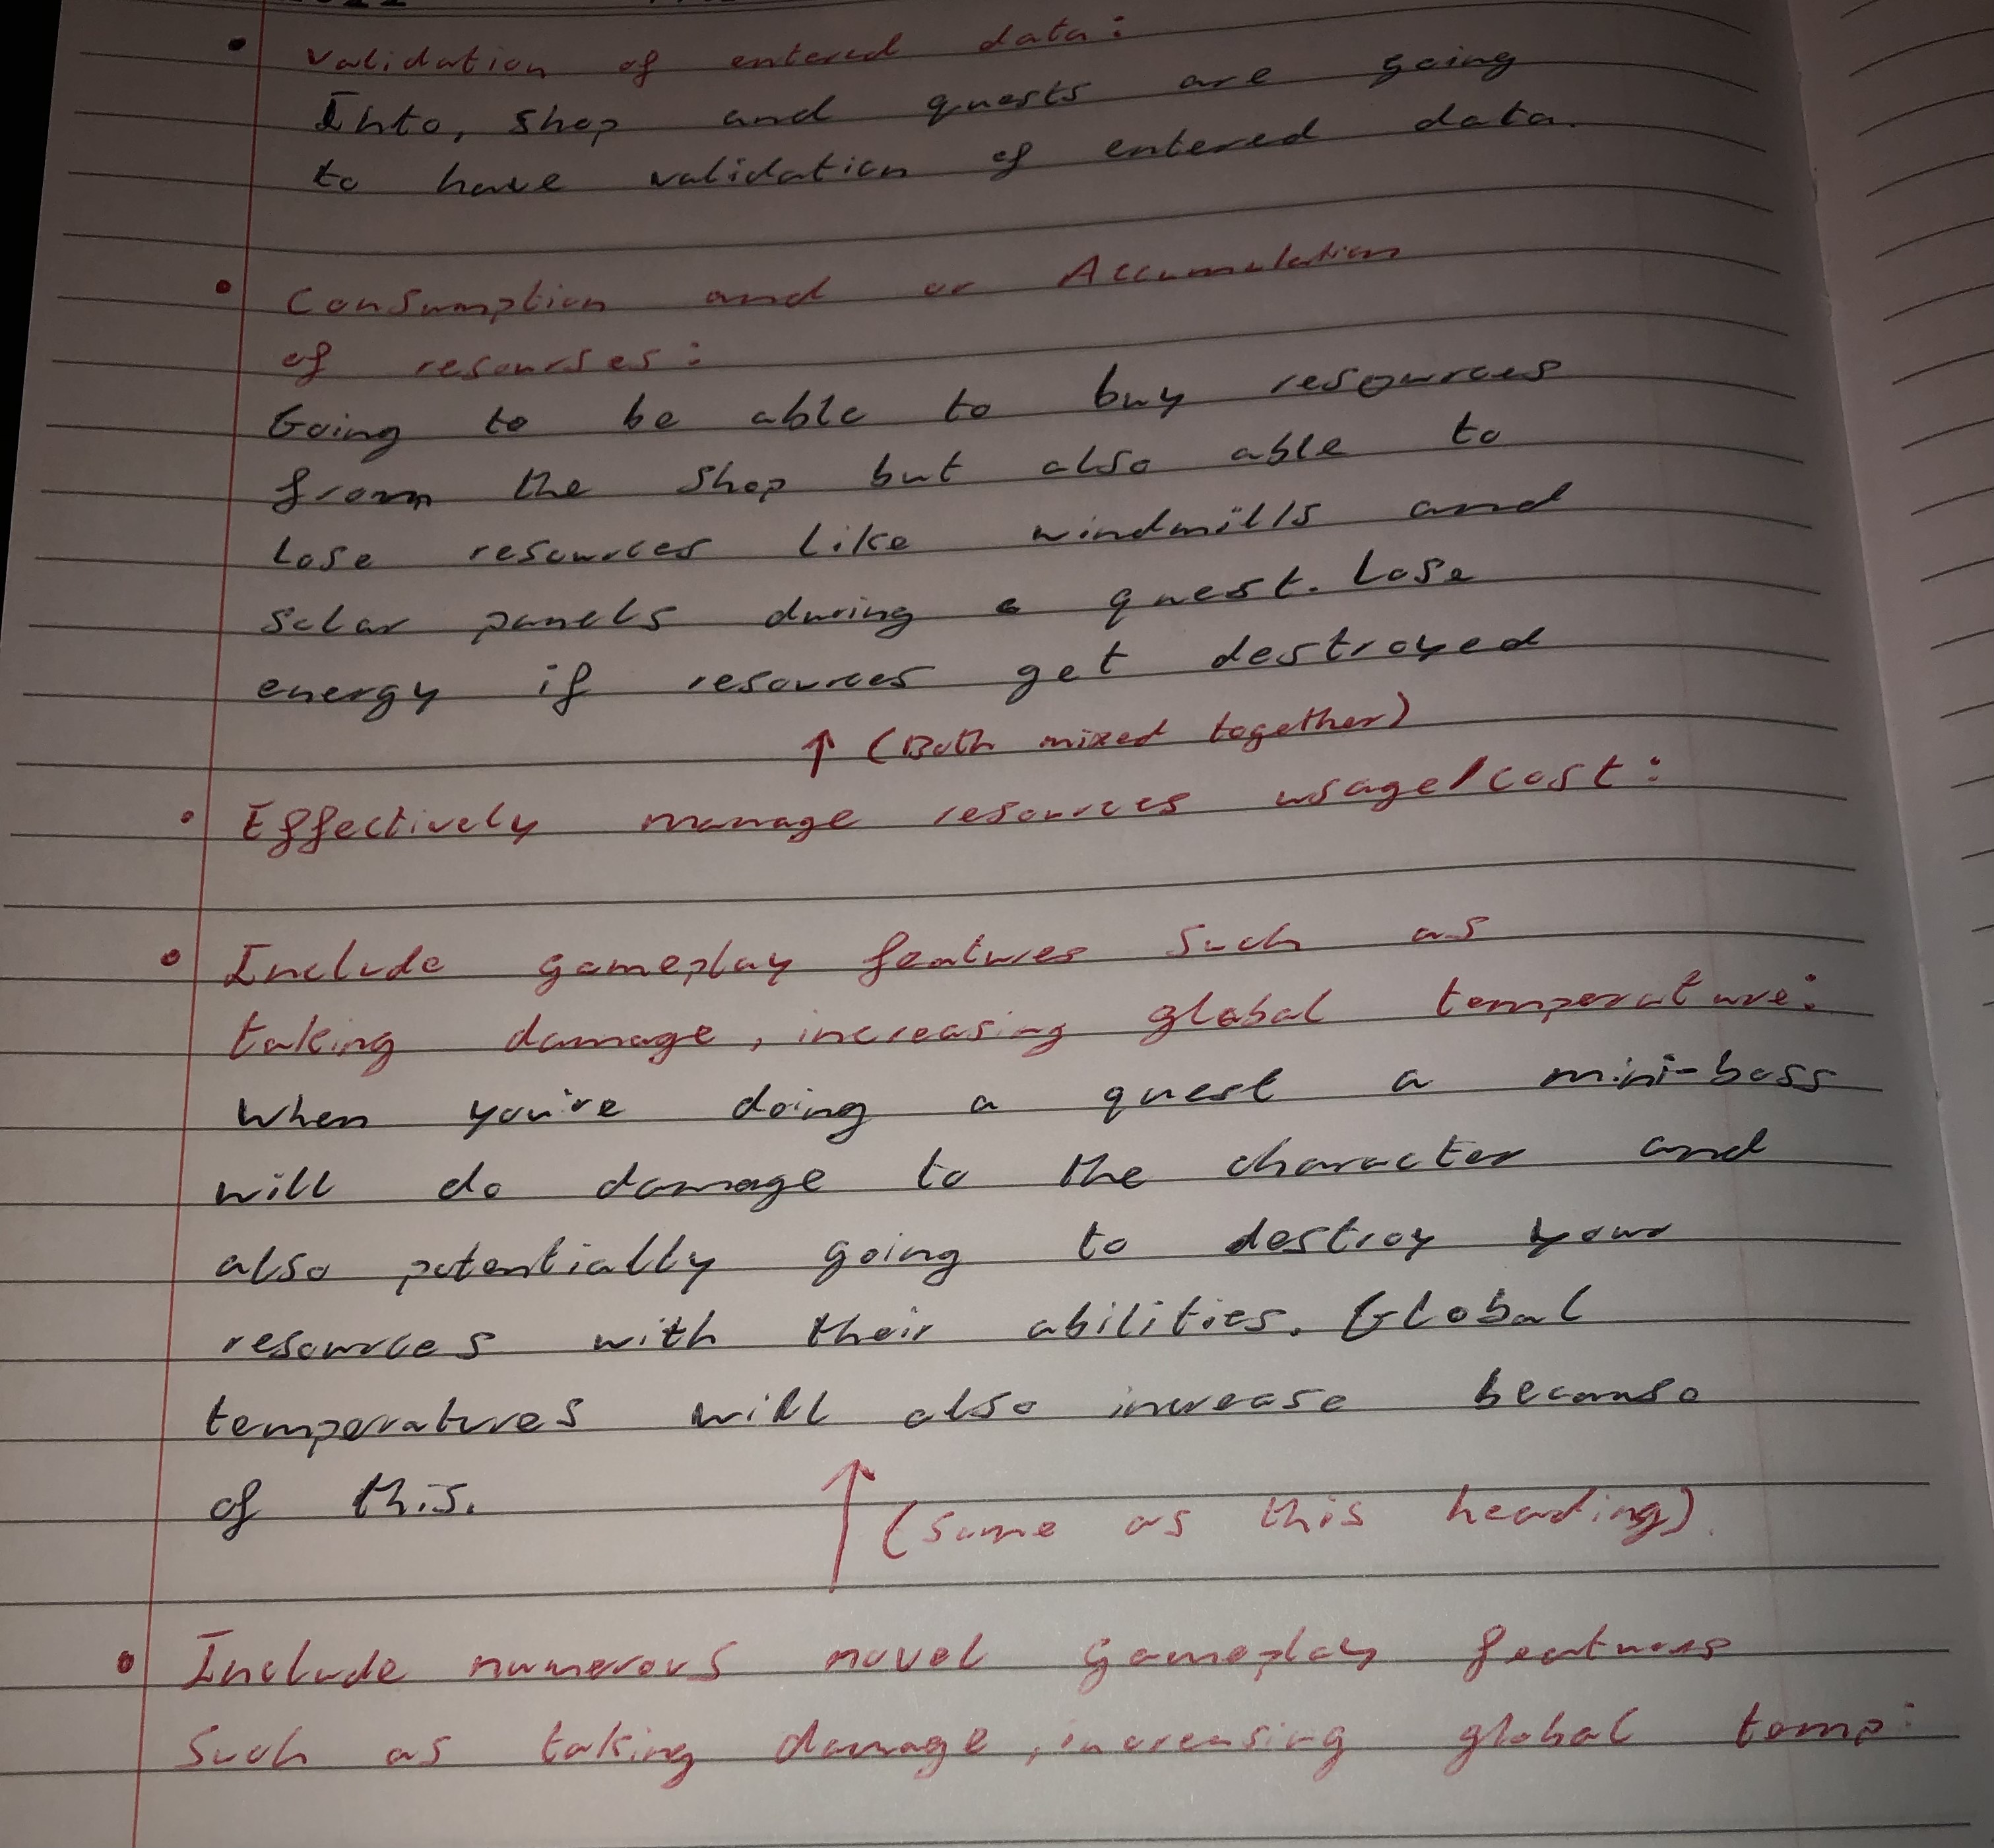 Validation of entered data:
Into, shop and quests are going
to have validation of entered data.
Consumption and or Accumulation
of resourses:
Going to be able to buy resources
from the shop but also able to
lose resources like windmills and
solar panels during a quest. Lose
energy if resources get destroyed
↑ (Both mixed together)
Effectively manage resources usage/cost:
Include gameplay features such as
taking damage, increasing global temperature:
When you're doing a quest a mini-boss
will do damage to the character and
also potentially going to destroy your
resources with their abilities. Global
temperatures will also increase because
of this.
↑ (same as this heading).
Include numerous novel gameplay features
such as taking damage, increasing global temp: